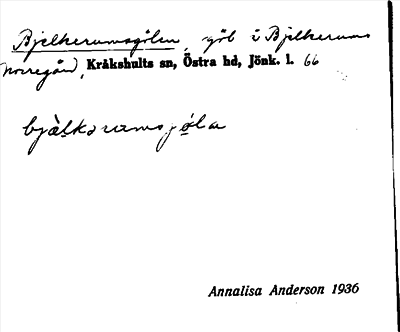 Bjelkerumsgölen, göl i Bjelkerums
Norregård, Kråkshults sn, Östra hd, Jönk. l. 66
bjàlkərumsjöla
Annalisa Anderson 1936